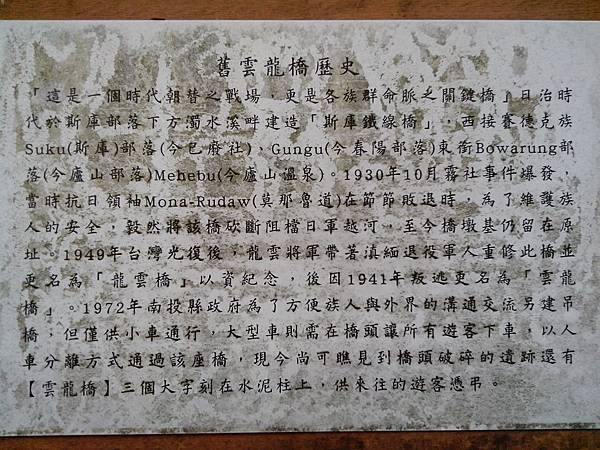 舊雲龍橋歷史
「這是一個時代朝替之戰場，更是各族群命脈之關鍵橋」日治時
代於斯庫部落下方濁水溪畔建造「斯庫鐵線橋」，西接賽德克族
Suku(斯庫)部落(今已廢社)、Gungu(今春陽部落)東銜Bowarung部
落(今廬山部落)Mehebu(今廬山溫泉)。1930年10月霧社事件爆發，
當時抗日領袖Mona-Rudaw(莫那魯道)在節節敗退時，為了維護族
人的安全，毅然將該橋砍斷阻檔日軍越河，至今橋墩基仍留在原
址。1949年台灣光復後，龍雲將軍帶著滇緬退役軍人重修此橋並
更名為「龍雲橋」以資紀念，後因1941年叛逃更名為「雲龍
橋」。1972年南投縣政府為了方便族人與外界的溝通交流另建吊
橋，但僅供小車通行，大型車則需在橋頭讓所有遊客下車，以人
車分離方式通過該座橋，現今尚可瞧見到橋頭破碎的遺跡還有
【雲龍橋】三個大字刻在水泥柱上，供來往的遊客憑弔。